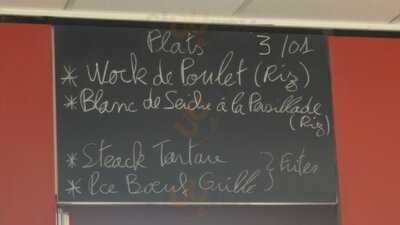 Plats 3/01
* Wock de Poulet (Riz)
* Blanc de Seiche à la Persillade
(Riz)
* Steack Tartare
* Pce Bœuf Grillé } Frites